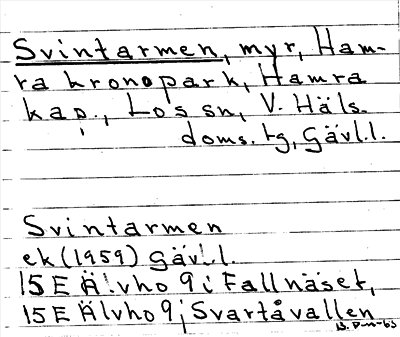 Svintarmen, myr, Ham-
ra kronopark, Hamra
kap., Los sn, V. Häls.
doms. tg, Gävl.l.
Svintarmen
ek (1959) Gävl.l.
15E Älvho 9i Fallnäset,
15E Älvho 9j Svartåvallen